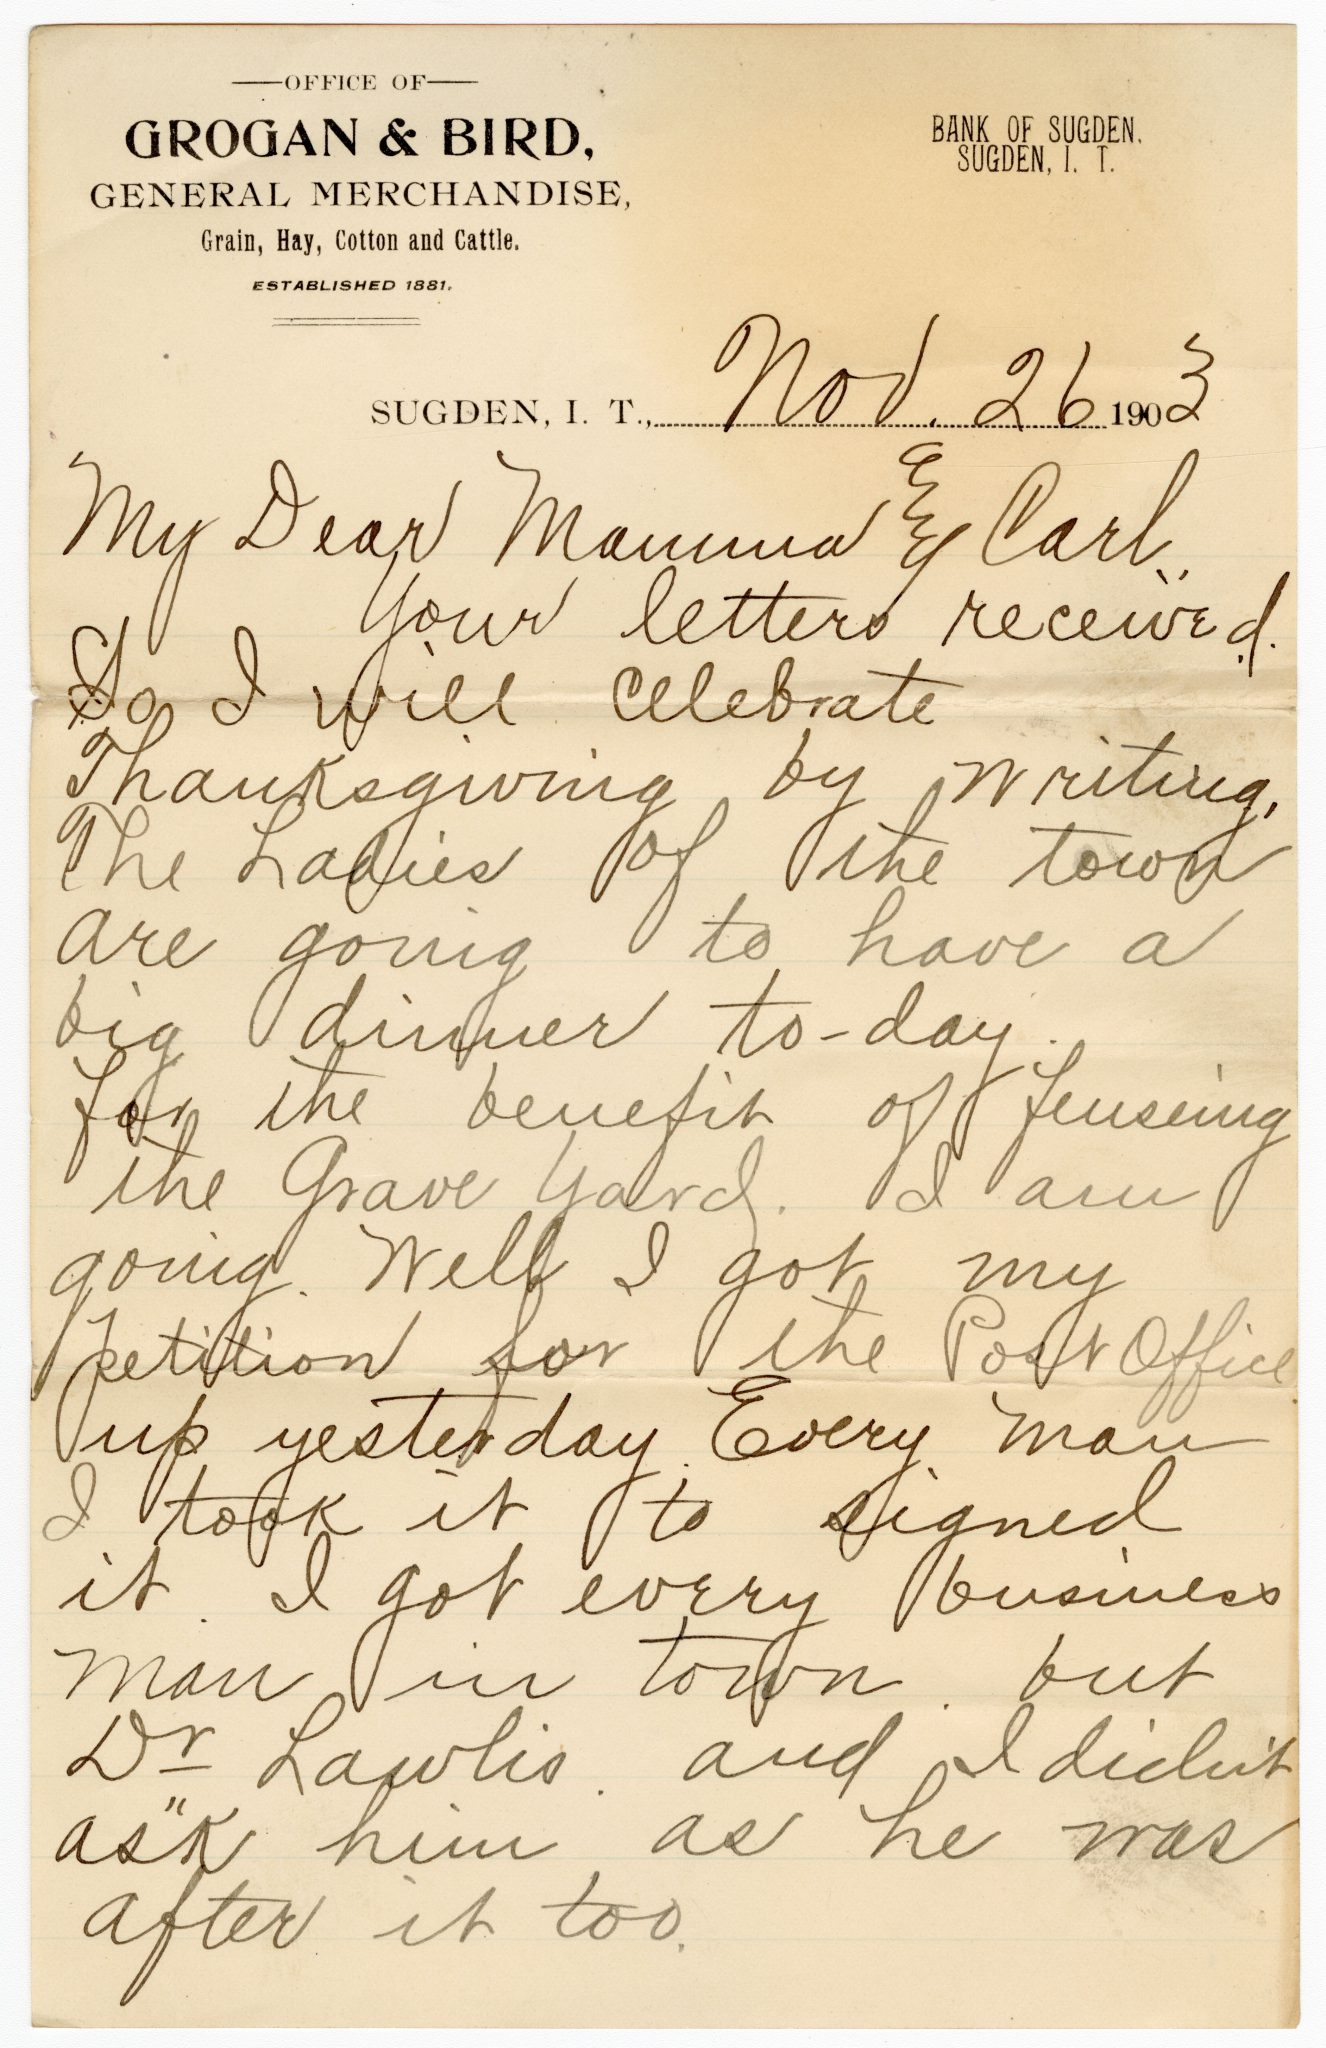 OFFICE OF
GROGAN & BIRD,
GENERAL MERCHANDISE,
Grain, Hay, Cotton and Cattle.
ESTABLISHED 1881.
BANK OF SUGDEN,
SUGDEN, I. T.
SUGDEN, I. T., Nov. 26 1903
My Dear Mamma & Carl.
Your letters received.
So I will celebrate
Thanksgiving by writing.
The Ladies of the town
are going to have a
big dinner to-day.
for the benefit of fenseing
the Grave Yard. I am
going. Well I got my
petition for the Post Office
up yesterday. Every man
I took it to signed
it. I got every business
man in town. but
Dr Lawlis. and I didn't
ask him as he was
after it too.